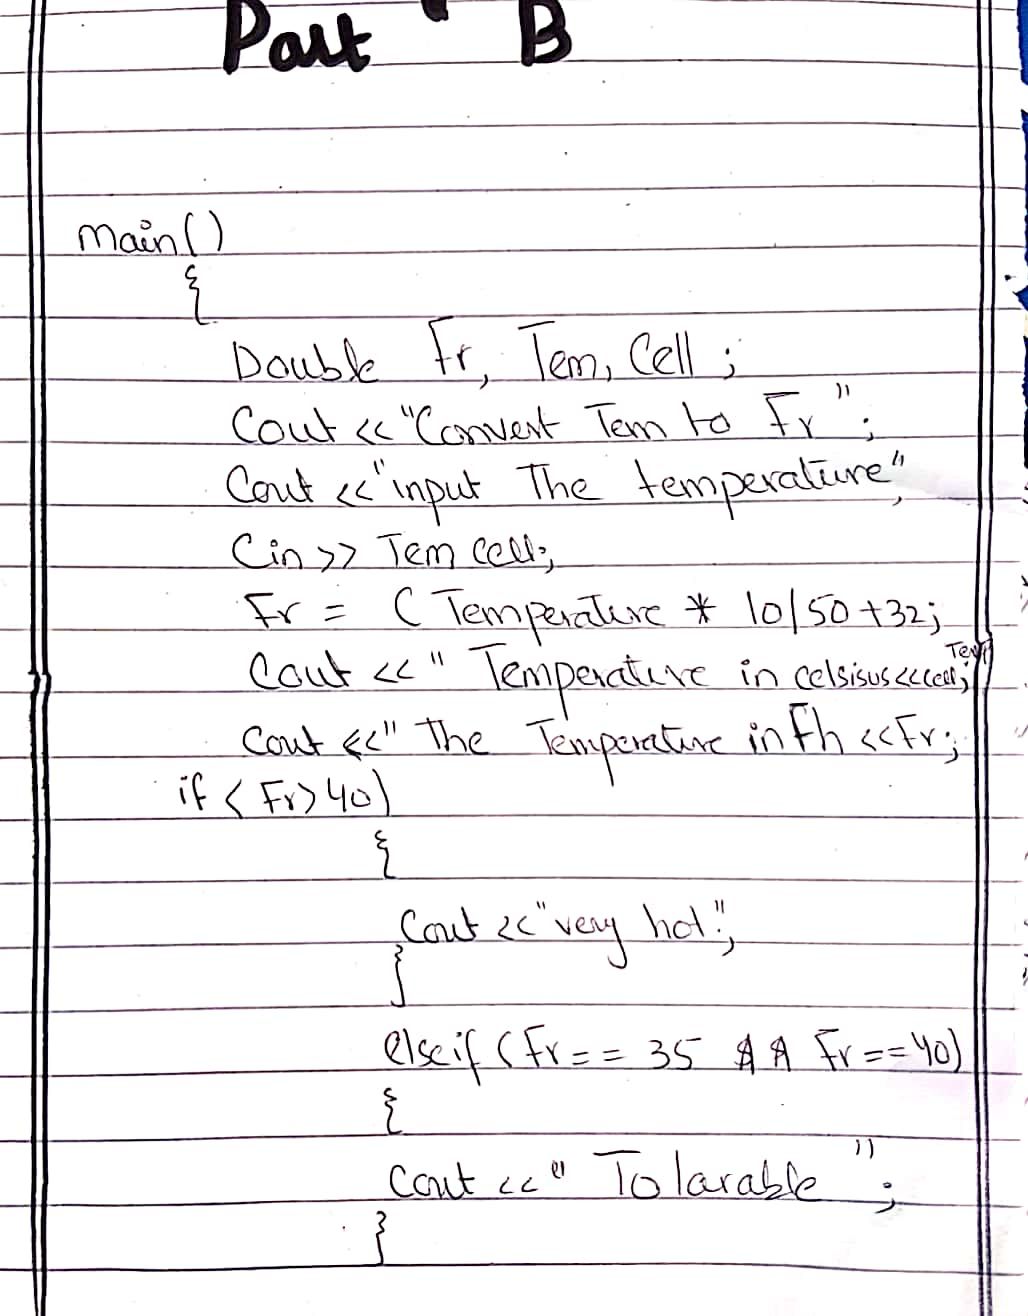 Part B
main()
{
Double Fr, Tem, Cell ;
Cout << "Convert Tem to Fr" ;
Cout << "input The temperature";
Cin >> Tem Cell;
Fr = ( Temperature * 10/50 +32;
Cout << " Temperature in celsisus <<cell; Tem
Cout << " The Temperature in Fh <<Fr;
if ( Fr > 40)
{
Cout << "very hot";
}
elseif (Fr == 35 && Fr ==40)
{
Cout << " Tolarable " ;
}